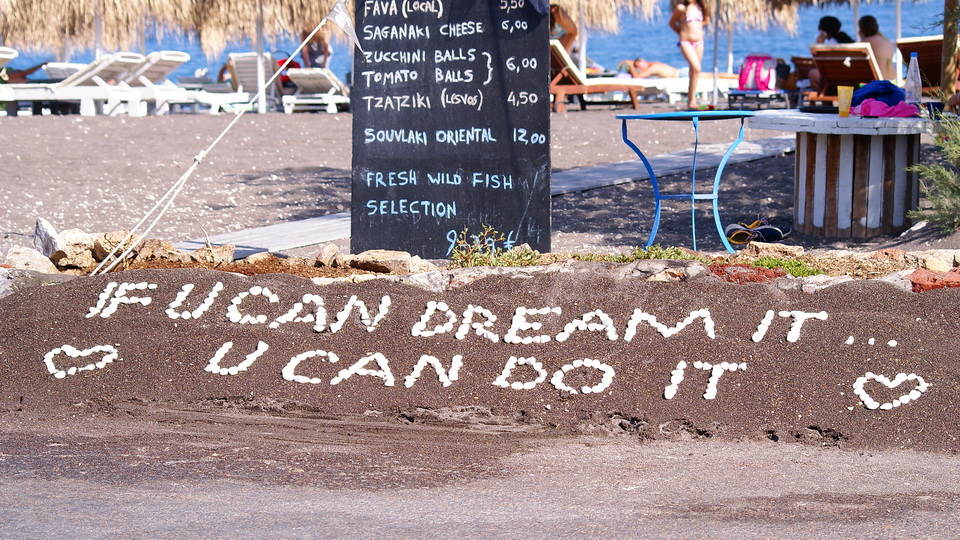 FAVA (LOCAL) 5,50
SAGANAKI CHEESE 6,00
ZUCCHINI BALLS
TOMATO BALLS } 6,00
TZATZIKI (LESVOS) 4,50
SOUVLAKI ORIENTAL 12,00
FRESH WILD FISH
SELECTION
IF U CAN DREAM IT...
U CAN DO IT